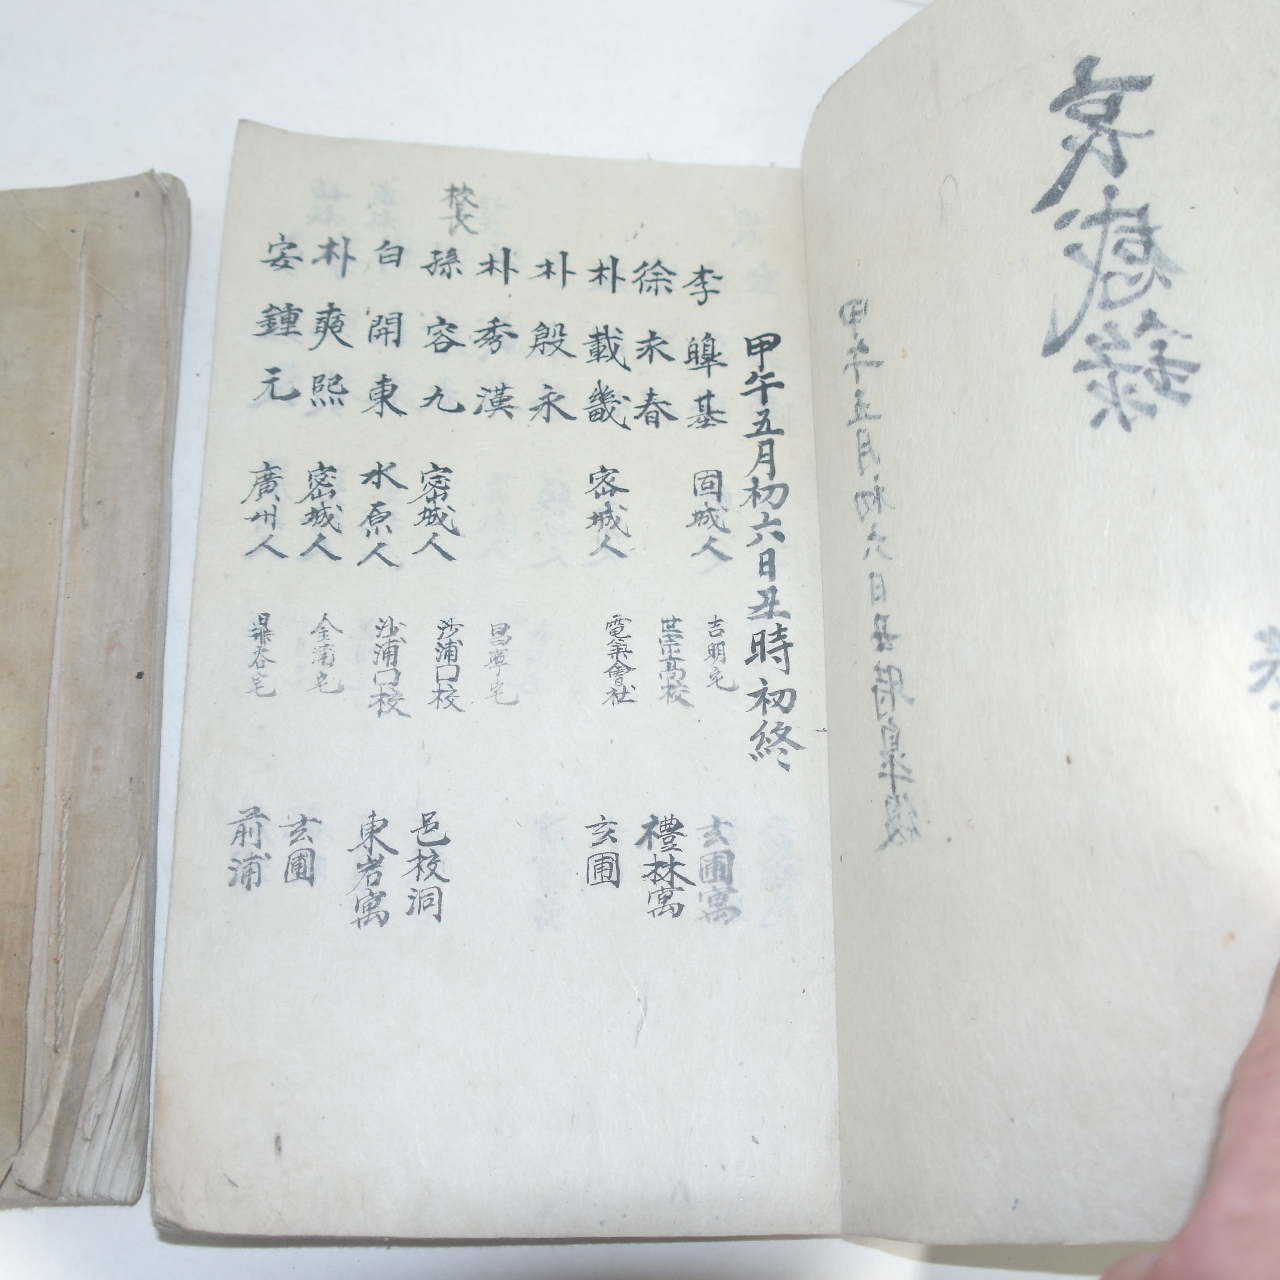 哀感錄
甲午五月初六日丑時皐復
甲午五月初六日丑時初終
李 皥基 固城人 吉明宅 玄圃寓
徐 未春 世宗高校 禮林寓
朴 載畿 密城人 電氣會社 玄圃
朴 殷永
朴 秀漢 昌寧宅
校長 孫 容九 密城人 沙浦口校 邑校洞
白 開東 水原人 沙浦口校 東岩寓
朴 奭熙 密城人 金浦宅 玄圃
安 鍾元 廣州人 宅 前浦